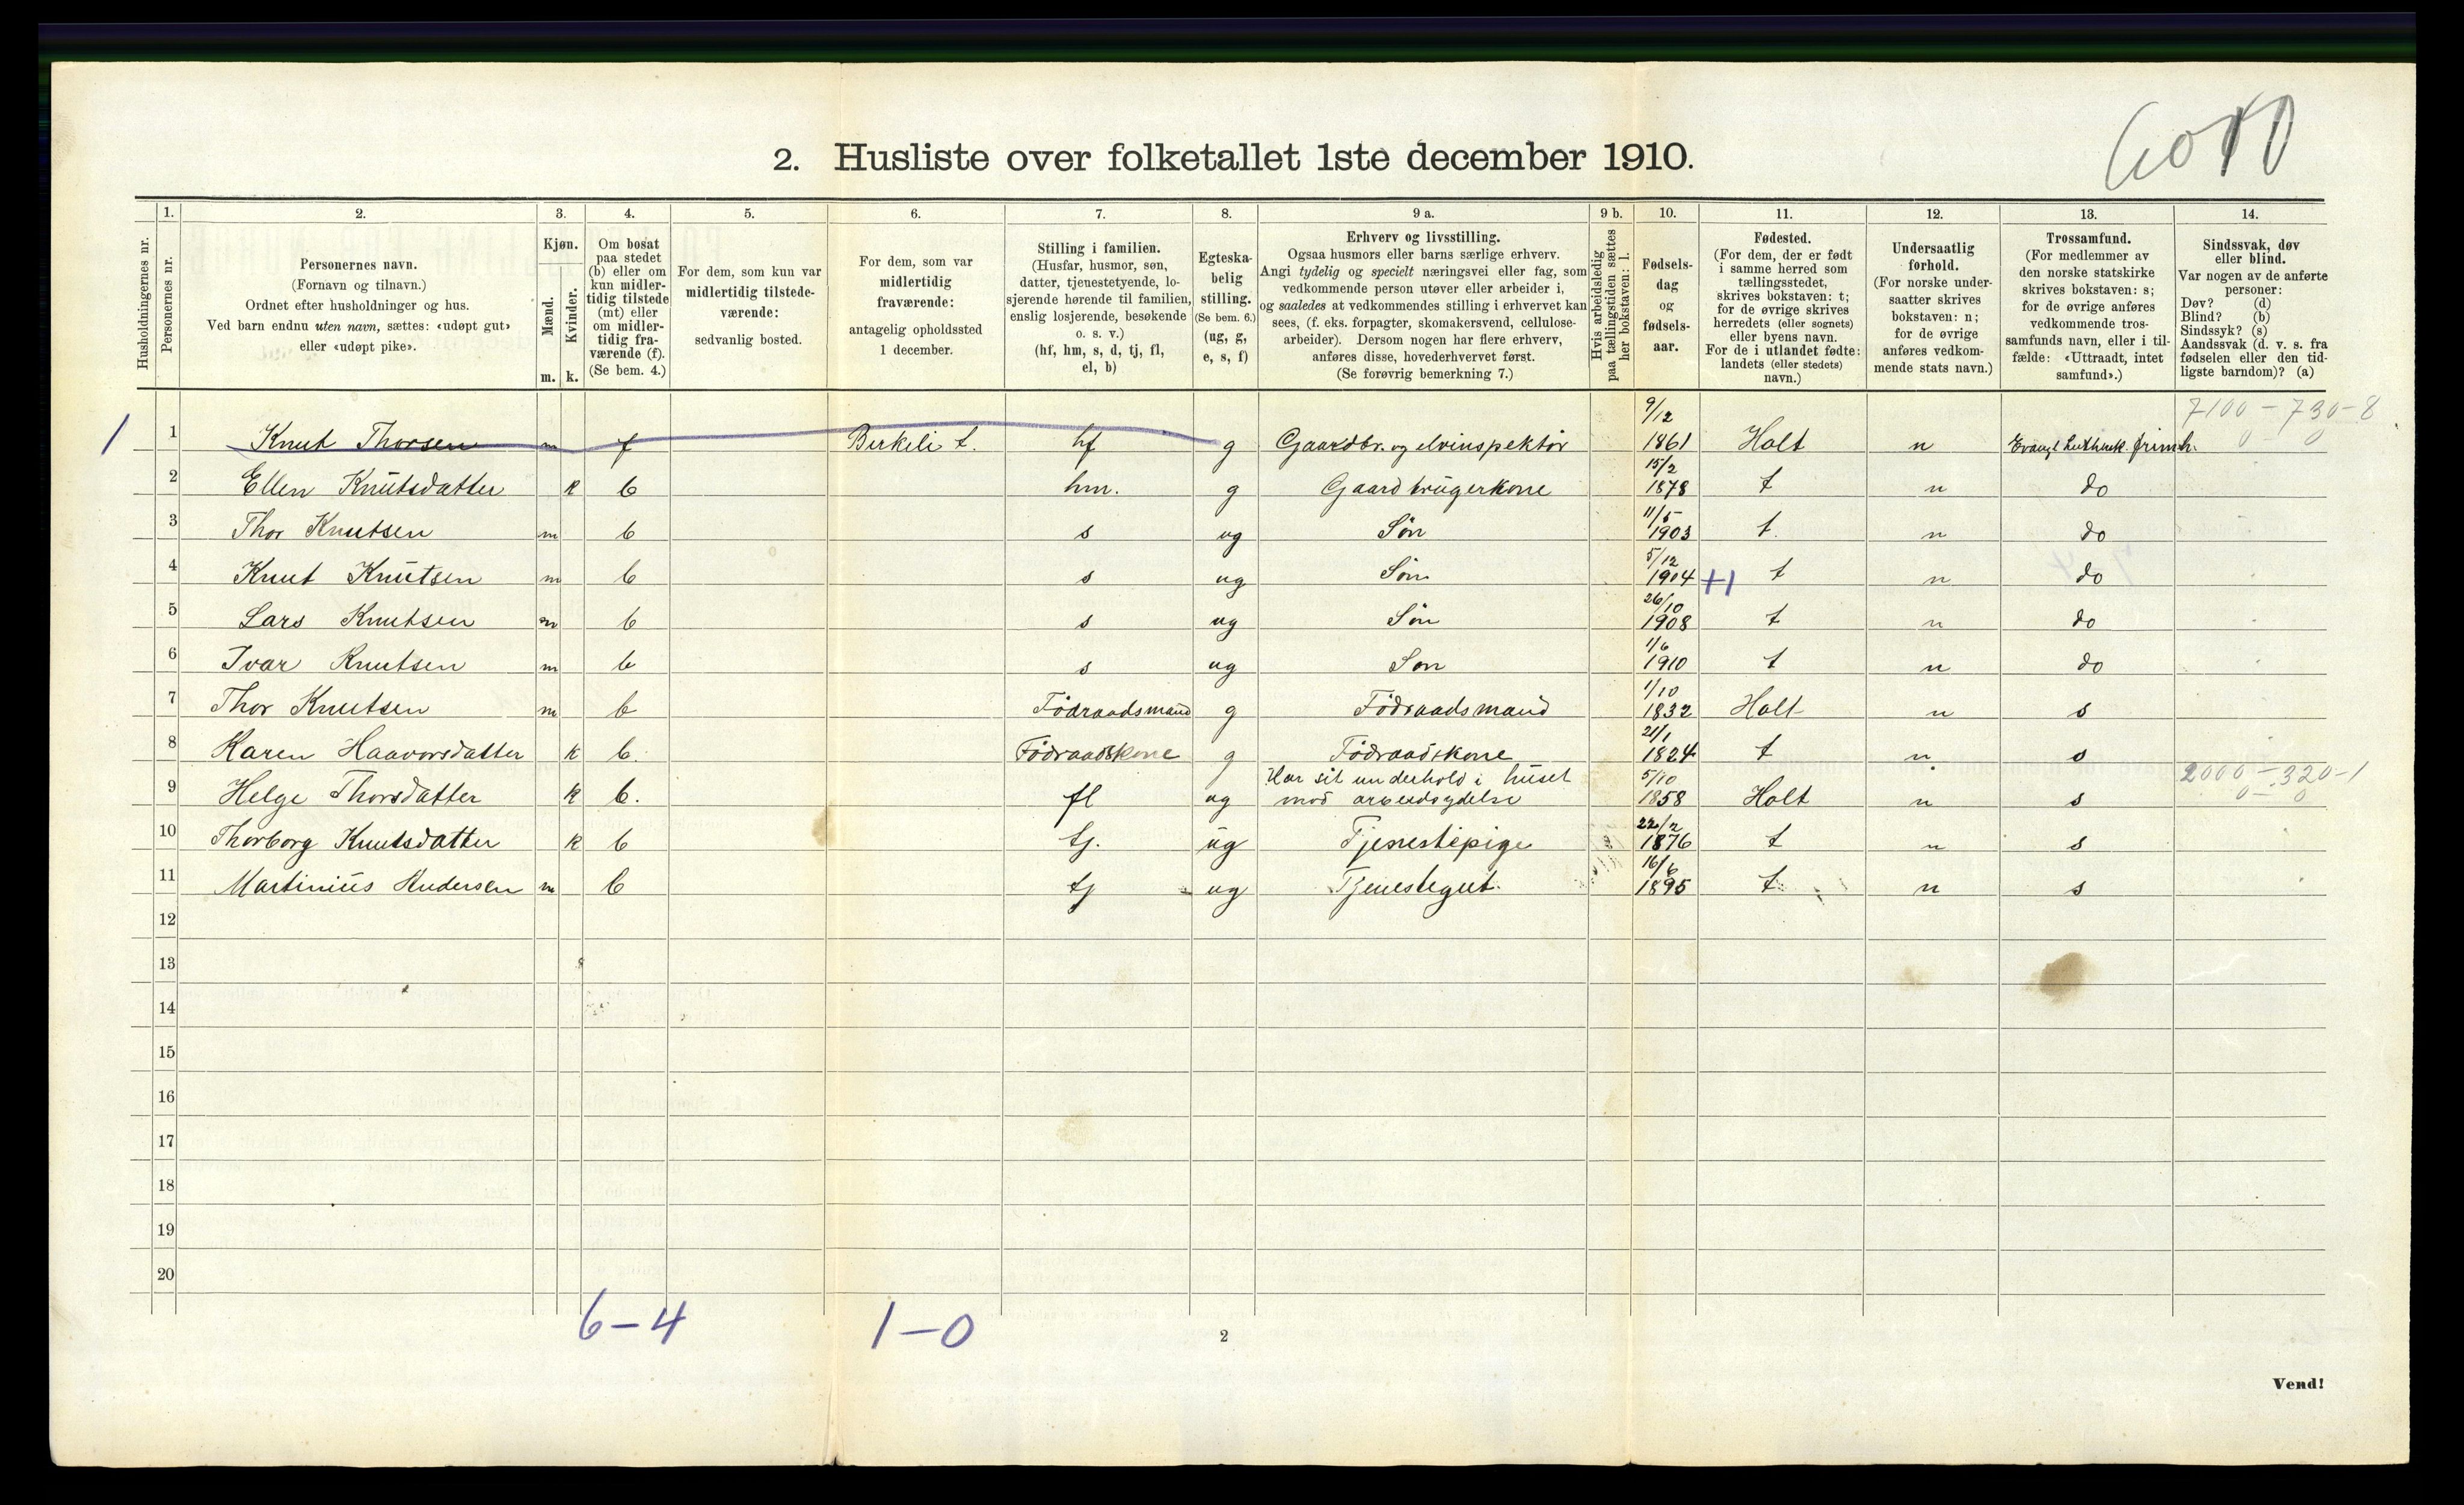 6010
2. Husliste over folketallet 1ste december 1910.
Husholdningernes nr.
1.
Personernes nr.
2.
Personernes navn.
(Fornavn og tilnavn.)
Ordnet efter husholdninger og hus.
Ved barn endnu uten navn, sættes: «udøpt gut»
eller «udøpt pike».
3.
Kjøn.
Mænd.
Kvinder.
m. k.
4.
Om bosat
paa stedet
(b) eller om
kun midler-
tidig tilstede
(mt) eller
om midler-
tidig fra-
værende (f).
(Se bem. 4.)
5.
For dem, som kun var
midlertidig tilstede-
værende:
sedvanlig bosted.
6.
For dem, som var
midlertidig
fraværende:
antagelig opholdssted
1 december.
7.
Stilling i familien.
(Husfar, husmor, søn,
datter, tjenestetyende, lo-
sjerende hørende til familien,
enslig losjerende, besøkende
o. s. v.)
(hf, hm, s, d, tj, fl,
el, b)
8.
Egteska-
belig
stilling.
(Se bem. 6.)
(ug, g,
e, s, f)
9 a.
Erhverv og livsstilling.
Ogsaa husmors eller barns særlige erhverv.
Angi tydelig og specielt næringsvei eller fag, som
vedkommende person utøver eller arbeider i,
og saaledes at vedkommendes stilling i erhvervet kan
sees, (f. eks. forpagter, skomakersvend, cellulose-
arbeider). Dersom nogen har flere erhverv,
anføres disse, hovederhvervet først.
(Se forøvrig bemerkning 7.)
9 b.
Hvis arbeidsledig
paa tællingstiden sættes
her bokstaven: l.
10.
Fødsels-
dag
og
fødsels-
aar.
11.
Fødested.
(For dem, der er født
i samme herred som
tællingsstedet,
skrives bokstaven: t;
for de øvrige skrives
herredets (eller sognets)
eller byens navn.
For de i utlandet fødte:
landets (eller stedets)
navn.)
12.
Undersaatlig
forhold.
(For norske under-
saatter skrives
bokstaven: n;
for de øvrige
anføres vedkom-
mende stats navn.)
13.
Trossamfund.
(For medlemmer av
den norske statskirke
skrives bokstaven: s;
for de øvrige anføres
vedkommende tros-
samfunds navn, eller i til-
fælde: «Uttraadt, intet
samfund».)
14.
Sindssvak, døv
eller blind.
Var nogen av de anførte
personer:
Døv? (d)
Blind? (b)
Sindssyk? (s)
Aandssvak (d. v. s. fra
fødselen eller den tid-
ligste barndom)? (a)
7100 - 730-8
0 - 0
1 1 Knut Thorsen m f Birkeli t. hf g Gaardbr. og elvinspektør 9/12 1861 Holt n Evangl. Luthersk frimh.
2 Ellen Knutsdatter k b hm. g Gaardbrugerkone 15/2 1878 t n do
3 Thor Knutsen m b s ug Søn 11/5 1903 t. n do
4 Knut Knutsen m b s ug Søn 5/12 1904 +1 t n do
5 Lars Knutsen m b s ug Søn 26/10 1908 t n do
6 Ivar Knutsen m b s ug Søn 1/6 1910 t n do
7 Thor Knutsen m b Födraadsmand g Födraadsmand 1/10 1832 Holt n s
8 Karen Haavorsdatter k b. Födraadskone g Födraadskone 21/1 1824 t n s
9 Helge Thorsdatter k b. fl ug Har sit underhold i huset
mod arbeidsydelse 5/10 1858 Holt n s 2000 - 320-1
0 - 0
10 Thorborg Knutsdatter k b tj. ug Tjenestepige 22/2 1876 t n s
11 Martinius Andersen m b tj ug Tjenestegut. 16/6 1895 t n s
12
13
14
15
16
17
18
19
20
6-4 1-0
2
Vend!